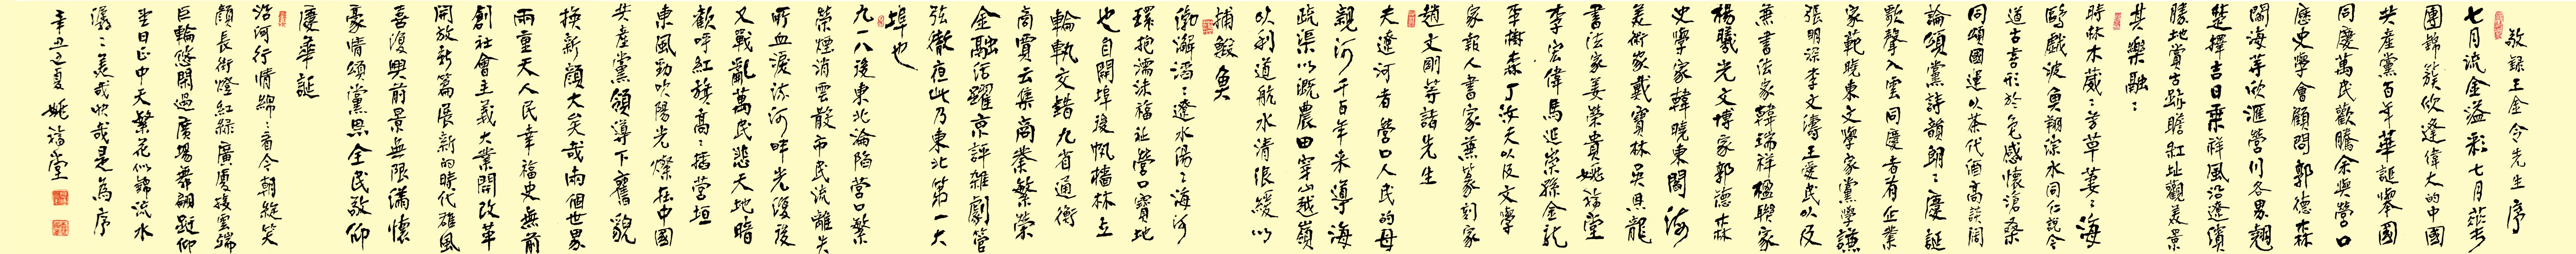 敬録王金令先生序
七月流金溢彩七月
團錦簇欣逢偉大的中國
共産黨百年華誕舉國
同慶萬民歡騰余與營口
歷史學會顧問郭德森
閣海等欣滙營川各界翹
楚擇吉日乗祥風沿遼濱
勝地賞古跡瞻紅址觀美景
其樂融〻
時林木葳〻芳草萋〻海
鷗戲波魚翔淙水同仁説今
道古喜形於色感懷滄桑
同頌國運以茶代酒高談闊
論頌黨詩韻朗〻慶誕
歌聲入雲同慶者有企業
家範曉東文學家黨學謙
張明深李文濤王愛民以及
兼書法家韓瑞祥楹聯家
楊曦光文博家郭德森
史學家韓曉東閻海
美術家戴寶林吳具龍
書法家姜榮貴姚福堂
李宏偉馬延崇孫金龍
李樹森丁汝天以及文學
家報人書家兼篆刻家
趙文剛等諸先生
夫遼河者營口人民的母
親河千百年來導海
疏渠以溉農田穿山越嶺
以利道航水清浪緩以
捕鰕魚
渤澥滔〻遼水湯〻海河
環抱濡沫福祉營口寶地
也自開埠後帆檣林立
輪軌交錯九省通衢
商賈云集商業繁榮
金融活躍京評雜劇管
弦徹夜此乃東北第一大
埠也
九一八後東北淪陷營口繁
榮煙消雲散市民流離失
所血淚流河畔光復後
又戰亂萬民悲天地暗
歡呼紅旗高〻插營垣
東風勁吹陽光燦在中國
共産黨領導下舊貌
換新顏大矣哉兩個世界
兩重天人民幸福史無前
創社會主義大業開改革
開放新篇展新的時代雄風
喜復興前景無限滿懷
豪情頌黨恩全民敬仰
慶華誕
沿河行情綿〻看今朝綻笑
顏長街燈紅緑廣廈接雲端
巨輪悠閑過廣場舞翩躚仰
望日正中天繁花似錦流水
潺〻美哉快哉是為序
辛丑夏姚福堂